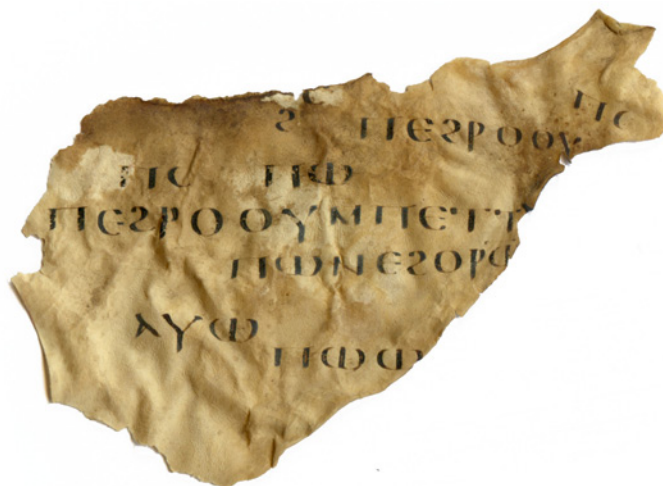 ϩ ⲡⲉϩⲣⲟⲟⲩ ⲡⲥ
ⲡⲥ ⲡⲱ
ⲡⲉϩⲣⲟⲟⲩⲙⲡⲉ
ⲡⲱⲛⲉϩⲟⲣⲱ
ⲁⲩⲱ
ⲡⲱⲱ